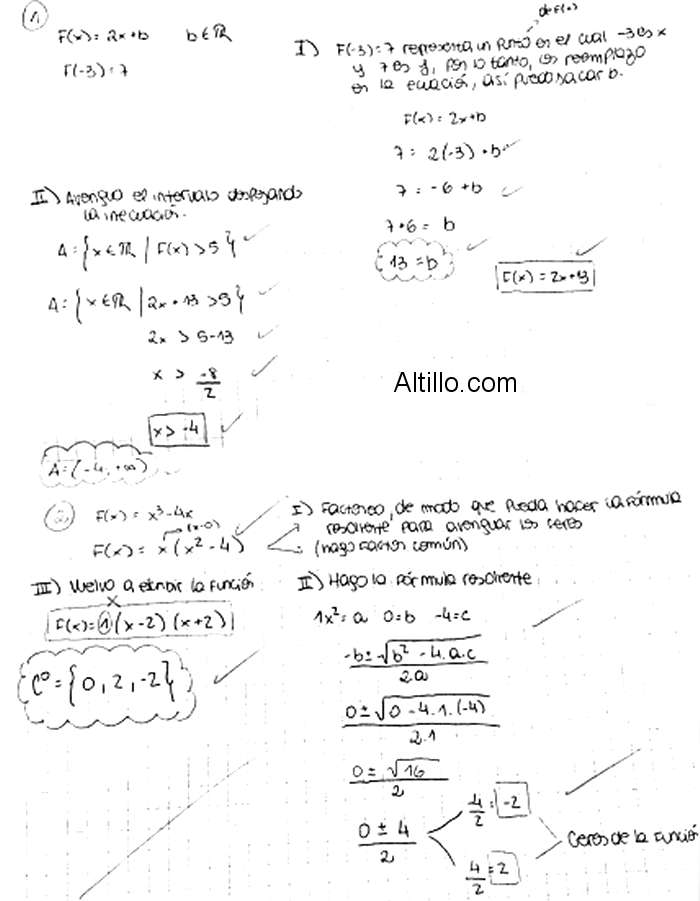 1
F(x) = 2x+b b∈ℝ
F(-3) = 7
de F(x)
I) F(-3)=7 representa un punto en el cual -3 es x
y 7 es y, por lo tanto, los reemplazo
en la ecuación, así puedo sacar b.
F(x) = 2x+b
7 = 2(-3) + b
7 = -6 + b
7+6 = b
13 = b
F(x) = 2x+
II) Averiguo el intervalo despejando
la inecuación.
A = {x∈ℝ | F(x) > 5}
A = {x∈ℝ | 2x + 13 > 5}
2x > 5-13
x > -8/2
x > -4
A = (-4, +∞)
Altillo.com
2) F(x) = x³-4x
(x-0)
F(x) = x(x²-4)
I) Factoreo, de modo que pueda hacer la fórmula
resolvente para averiguar los ceros
(hago factor común)
III) Vuelvo a escribir la función
x
F(x) = 1(x-2)(x+2)
C⁰ = {0, 2, -2}
II) Hago la fórmula resolvente
1x² = a 0=b -4=c
-b±√b²-4.a.c
2.a
0±√0-4.1.(-4)
2.1
0±√16
2
0±4
2
4/2 = -2
4/2 = 2
Ceros de la función